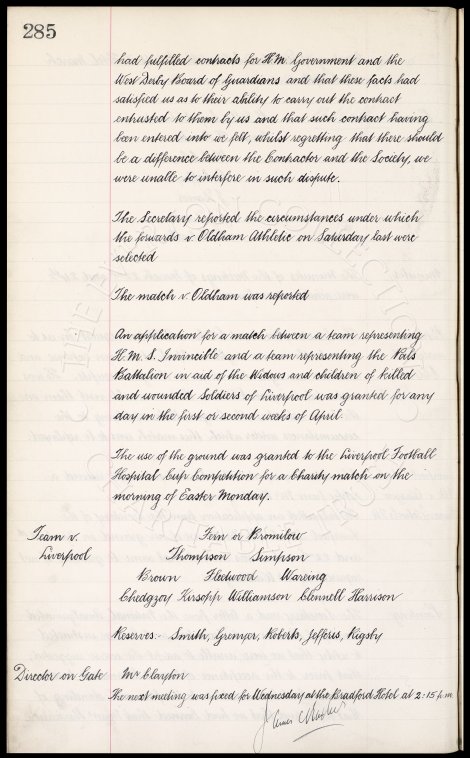 285
had fulfilled contracts for H.M. Government and the
West Derby Board of Guardians and that these facts had
satisfied us as to their ability to carry out the contract
entrusted to them by us and that such contract having
been entered into we felt, whilst regretting that there should
be a difference between the Contractor and the Society, we
were unable to interfere in such dispute.
The Secretary reported the circumstances under which
the forwards v. Oldham Athletic on Saturday last were
selected
The match v. Oldham was reported
An application for a match between a team representing
H.M.S. Invincible and a team representing the Pals
Battalion in aid of the Widows and children of killed
and wounded Soldiers of Liverpool was granted for any
day in the first or second weeks of April.
The use of the ground was granted to the Liverpool Football
Hospital Cup Competition for a Charity match on the
morning of Easter Monday.
Team v. Fern or Bromilow
Liverpool Thompson Simpson
Brown Fleetwood Wareing
Chedgzoy Kirsopp Williamson Clennell Harrison
Reserves. Smith, Grenyer, Roberts, Jefferis, Rigsby
Director on Gate Mr Clayton
The next meeting was fixed for Wednesday at the Bradford Hotel at 2:15 p.m.